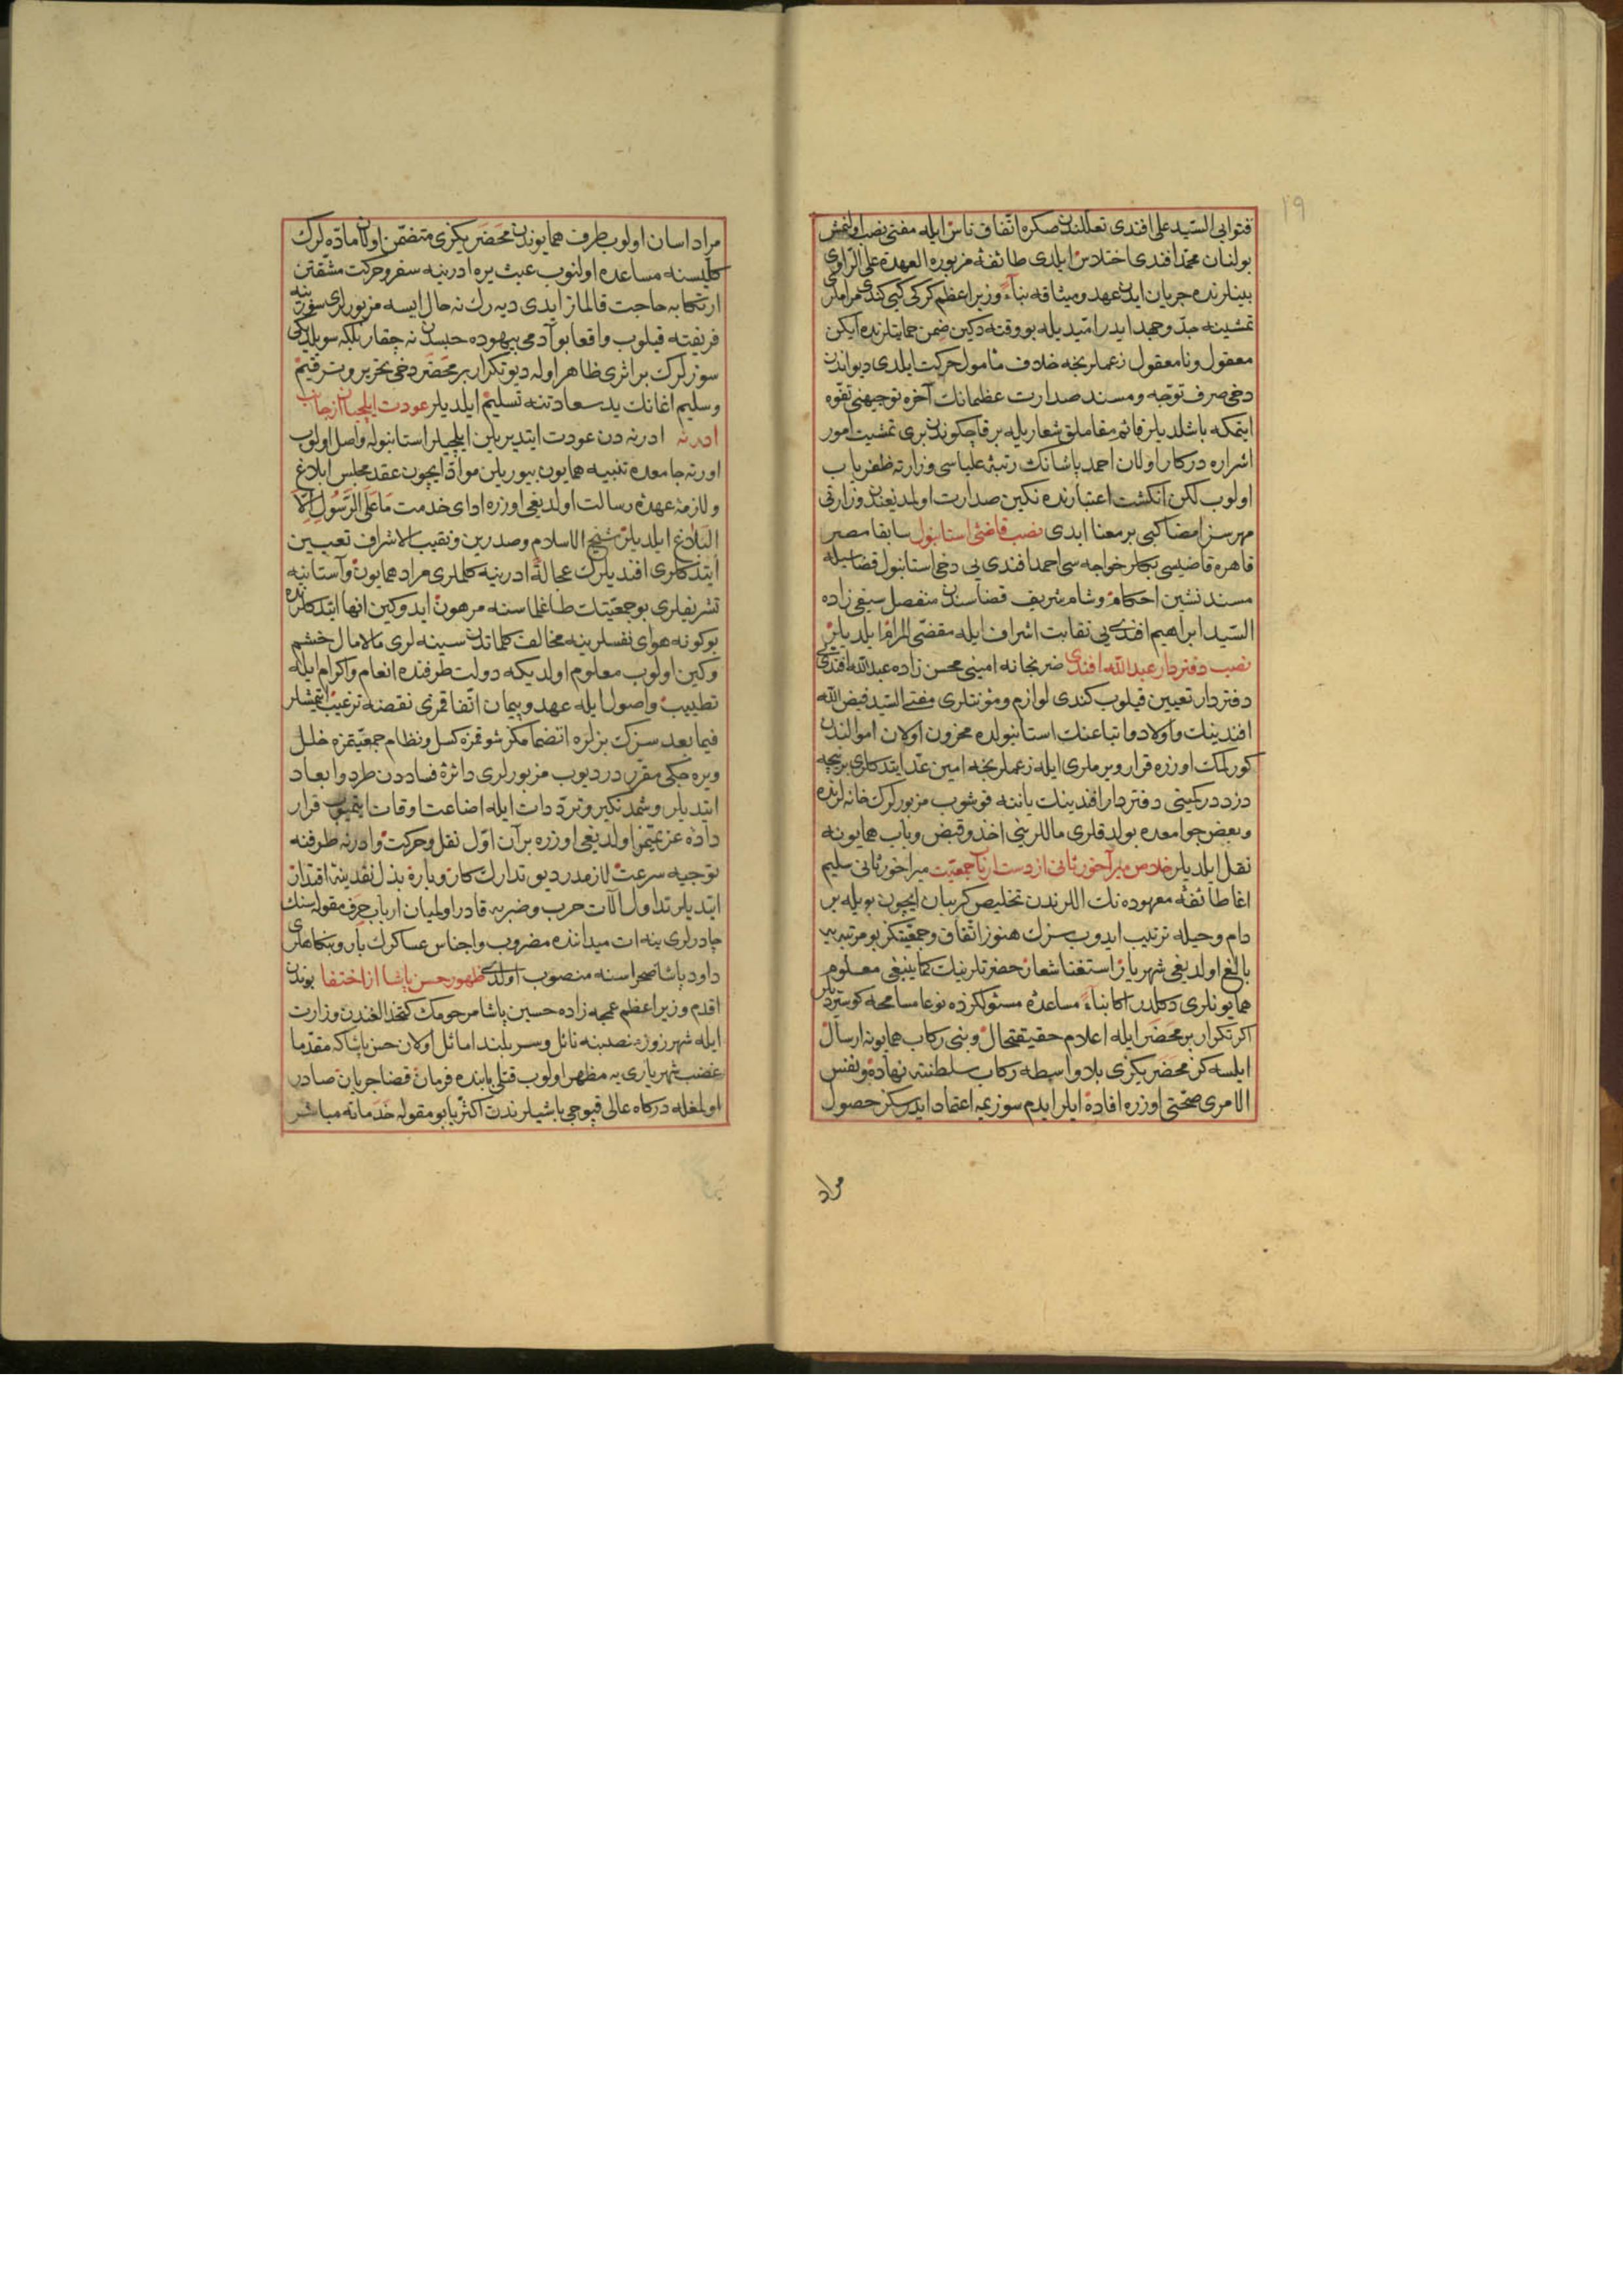 ١٩
فتوایی السید علی افندی تعللندن صکره اتفاق ناس ایله مفتی نصب اولنمش
بولنان محمد افندی اختلاس ایلدی طائفهٔ مزبوره العهدة علی الراوی
بینلرنده جریان ایدن عهد ومیثاقه بناءً وزیر اعظم کرکی کبی کندی مراملری
تمشیتنه جد وجهد ایدر امیدیله بو وقته دکین ضمن حمایتلرنده ایکن
معقول ونامعقول زعملرنجه خلاف مأمول حرکت ایلدی دیو اندن
دخی صرف توجه ومسند صدارت عظمانک آخره توجیهنی تفوه
ایتمکه باشلدیلر قائممقام ملق شعاریله بر قاچ کوندن بری تمشیت امور
اشراره درکار اولان احمد پاشانک رتبهٔ علیاسی وزارته ظفریاب
اولوب لکن انکشت اعتبارنده نکین صدارت اولمدیغندن وزارتی
مهرسز امضا کبی بر معنا ایدی نصب قاضئ استانبول سابقا مصر
قاهره قاضیسی بکلر خواجه سی احمد افندی یی دخی استانبول قضاسیله
مسند نشین احکام وشام شریف قضاسندن منفصل سیفی زاده
السید ابراهیم افندی یی نقابت اشراف ایله مقضی المرام ایلدیلر
نصب دفتردار عبد الله افندی ضربخانه امینی محسن زاده عبد الله افندی
دفتردار تعیین قیلوب کندی لوازم ومؤنتلری مفتی السید فیض الله
افندینک واولاد واتباعنک استانبولده مخزون اولان اموالندن
کورلمک اوزره قرار ویرملری ایله زعملرنجه امین عد ایتدکلری برنیجه
دزد درکمینی دفتردار افندینک یاننه قوشوب مزبورلرک خانه لرنده
وبعض جوامعده بولدقلری ماللرینی اخذ وقبض وباب همایونه
نقل ایلدیلر خلاص میرآخور ثانی از دست ارباب جمعیت میراخور ثانی سلیم
اغا طائفهٔ معهوده نک اللرندن تخلیص کریبان ایچون بویله بر
دام وحیله ترتیب ایدوب سزک هنوز اتفاق وجمعیتکز بو مرتبه یه
بالغ اولدیغی شهریار استغنا شعار حضرتلرینک کما ینبغی معلوم
همایونلری دکلدر اکا بناءً مساعدهٔ مسئولکزده نوعا مسامحه کوستردیلر
اکر تکرار بر محضر ایله اعلام حقیقتحال وبنی رکاب همایونه ارسال
ایلسه کز محضریکزی بلا واسطه رکاب سلطنته نهاده ونفس
الامری صحتی اوزره افاده ایلر ایدم سوزیمه اعتماد ایدرسکز حصول
مراد
مراد اسان اولوب طرف همایوندن محضریکزی متضمن اولان ماده لرک
کلیسنه مساعده اولنوب عبث یره ادرنه یه سفر وحرکت مشقتن
ارتکابه حاجت قالماز ایدی دیه رک نه حال ایسه مزبورلری سوزینه
فریفته قیلوب واقعا بو آدمی بیهوده حبسدن نه چقار بلکه سویلدیکی
سوزلرک بر اثری ظاهر اوله دیو تکرار بر محضر دخی تحریر وترقیم
وسلیم اغانک ید سعادتنه تسلیم ایلدیلر عودت ایلچیان از جانب
ادرنه ادرنه دن عودت ایتدیریلن ایلچیلر استانبوله واصل اولوب
اورته جامعده تنبیه همایون بیوریلن مواد ایچون عقد مجلس ابلاغ
ولازمهٔ عهدهٔ رسالت اولدیغی اوزره ادای خدمت ما علی الرسول الا
البلاغ ایلدیلر شیخ الاسلام وصدرین ونقیب الاشراف تعیین
ایتدکلری افندیلرک عجالةً ادرنه یه کلملری مراد همایون وآستانه یه
تشریفلری بو جمعیتک طاغلماسنه مرهون ایدوکین انها ایتدکلرنده
بو کونه هوای نفسلرینه مخالف کلماتدن سینه لری مالامال خشم
وکین اولوب معلوم اولدیکه دولت طرفنده انعام واکرام ایله
تطییب واصول ایله عهد وپیمان اتفاقمزی نقضه ترغیب ایتمشلر
فیما بعد سزک بزلره انضمامکز شوقمزه کسل ونظام جمعیتمزه خلل
ویره جکی مقرردر دیوب مزبورلری دائرهٔ فساددن طرد وابعاد
ایتدیلر وشمدنکیرو ترددات ایله اضاعت اوقات ایتمیوب قرار
داده عزیمتمز اولدیغی اوزره بر آن اول نقل وحرکت وادرنه طرفنه
توجیه سرعت لازمدر دیو تدارک کار وباره بذل نقدینهٔ اقتدار
ایتدیلر تداول آلات حرب وضربه قادر اولمیان ارباب حرف مقوله سنک
چادرلری ینه ات میداننده مضروب واجناس عساکرک بار وبنکاهلری
داود پاشا صحراسنه منصوب اولدی ظهور حسن پاشا از اختفا بوندن
اقدم وزیر اعظم عمجه زاده حسین پاشا مرحومک کتخدالغندن وزارت
ایله شهرزور منصبنه نائل وسربلند اماثل اولان حسن پاشاکه مقدما
غضب شهریاری یه مظهر اولوب قتلی بابنده فرمان قضا جریان صادر
اولمغله درکاه عالی قپوجی باشیلرندن اکثریا بو مقوله خدماته مباشر